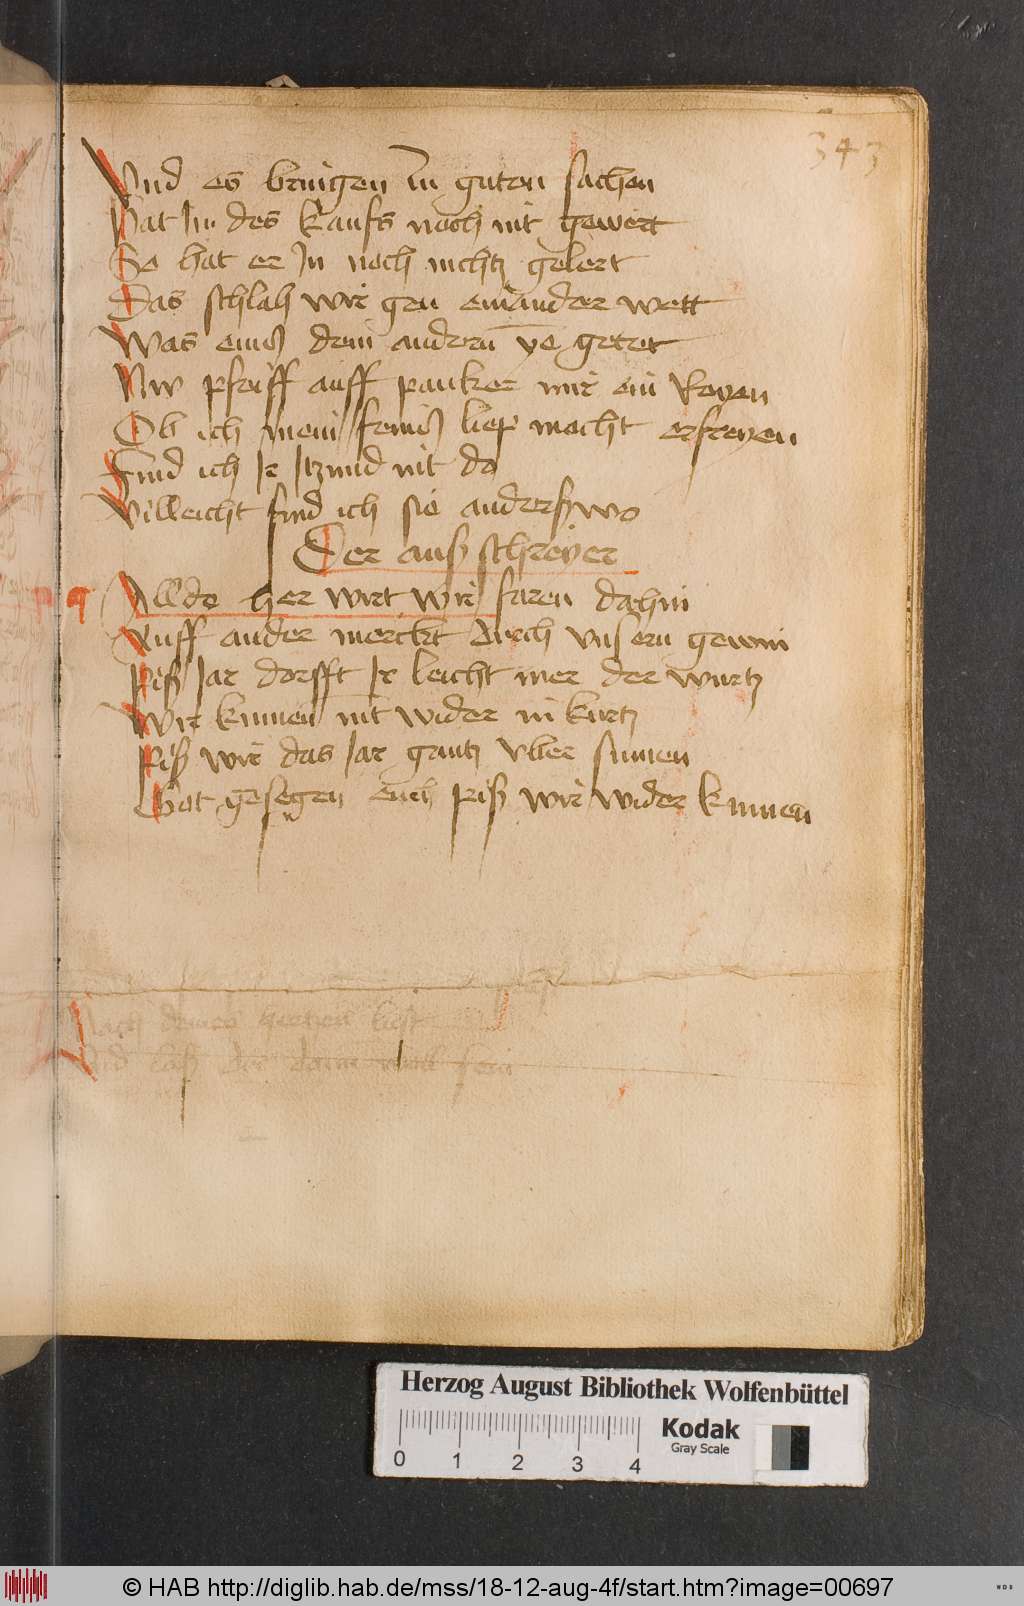 343
Vnd es bringen Im guten sachen
Hat Im des kaufs noch nit gewert
So hat er In noch nichtz gelert
Das schlah wir gen einander wett
Was eins dem andern ye getet
Nw pfeiff auff pauker mir ein Reyen
Ob ich mein feins liep mocht erfreyen
Find ich Ir Itzund nit do
Villeicht find ich sie anderßwo
Der auß schreyer
Allde her wirt wir faren dahin
Auff ander merckt durch vnsern gewin
Piß Jar dorfft Ir leicht mer der wurtz
Wir kumen nit wider in kurtz
Piß wir das Jar gantz vber sumen
Got gesegen euch piß wir wider kumen
Nach
Vnd laß dir dann wol sein
Herzog August Bibliothek Wolfenbüttel
Kodak
Gray Scale
0 1 2 3 4
© HAB http://diglib.hab.de/mss/18-12-aug-4f/start.htm?image=00697